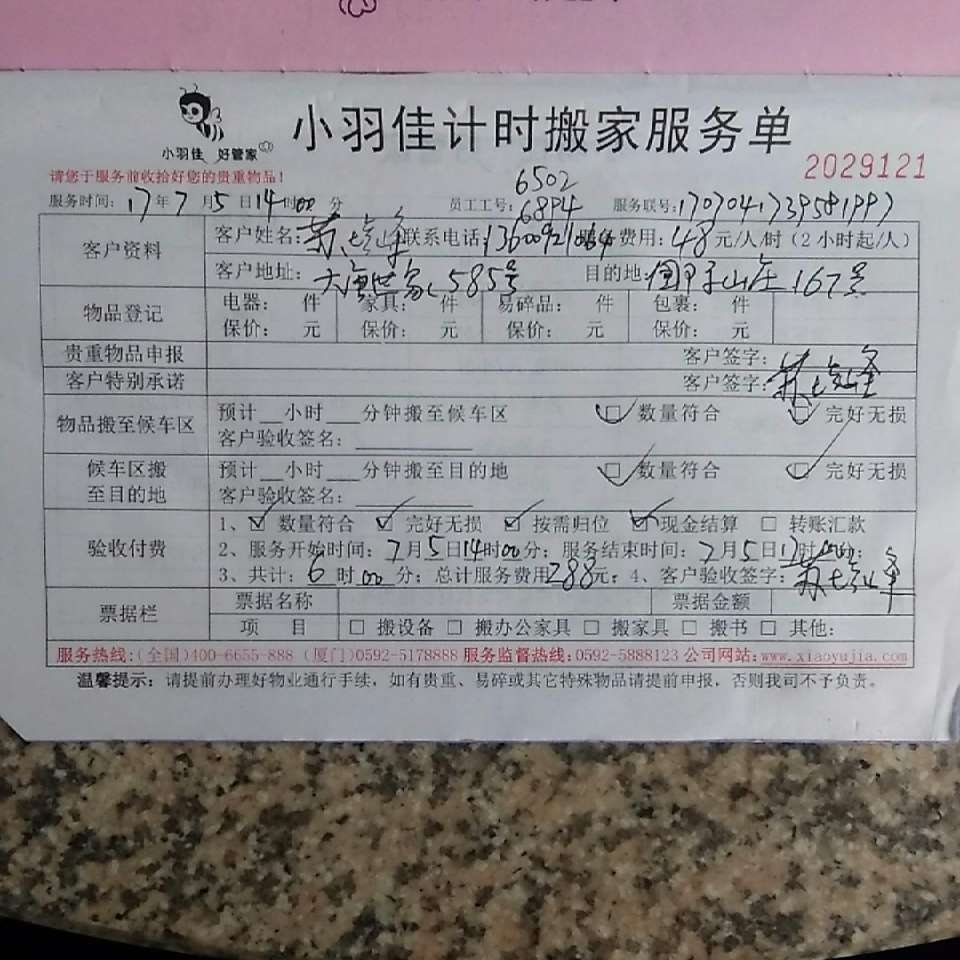 小羽佳 好管家
小羽佳计时搬家服务单
2029121
请您于服务前收拾好您的贵重物品!
6502
服务时间: 17年7月5日14时00分 员工工号: 6894 服务联号:
客户资料 客户姓名: 联系电话: 服务费用: 48元/人/时 (2小时起/人)
客户地址: 大唐世家 585号 目的地: 国甲子山庄 167号
物品登记 电器: 件 家具: 件 易碎品: 件 包裹: 件
保价: 元 保价: 元 保价: 元 保价: 元
贵重物品申报 客户签字:
客户特别承诺 客户签字:
物品搬至候车区 预计__小时___分钟搬至候车区 □数量符合 □完好无损
客户验收签名:
候车区搬至目的地 预计__小时___分钟搬至目的地 □数量符合 □完好无损
客户验收签名:
验收付费 1、☑数量符合 ☑完好无损 ☑按需归位 ☑现金结算 □转账汇款
2、服务开始时间: 7月5日14时00分; 服务结束时间: 7月5日17时00分;
3、共计: 6时00分; 总计服务费用288元; 4、客户验收签字:
票据栏 票据名称 票据金额
项 目 □搬设备 □搬办公家具 □搬家具 □搬书 □其他:
服务热线:(全国)400-6655-888 (厦门)0592-5178888 服务监督热线:0592-5888123 公司网站:www.xiaoyujia.com
温馨提示: 请提前办理好物业通行手续, 如有贵重、易碎或其它特殊物品请提前申报, 否则我司不予负责。